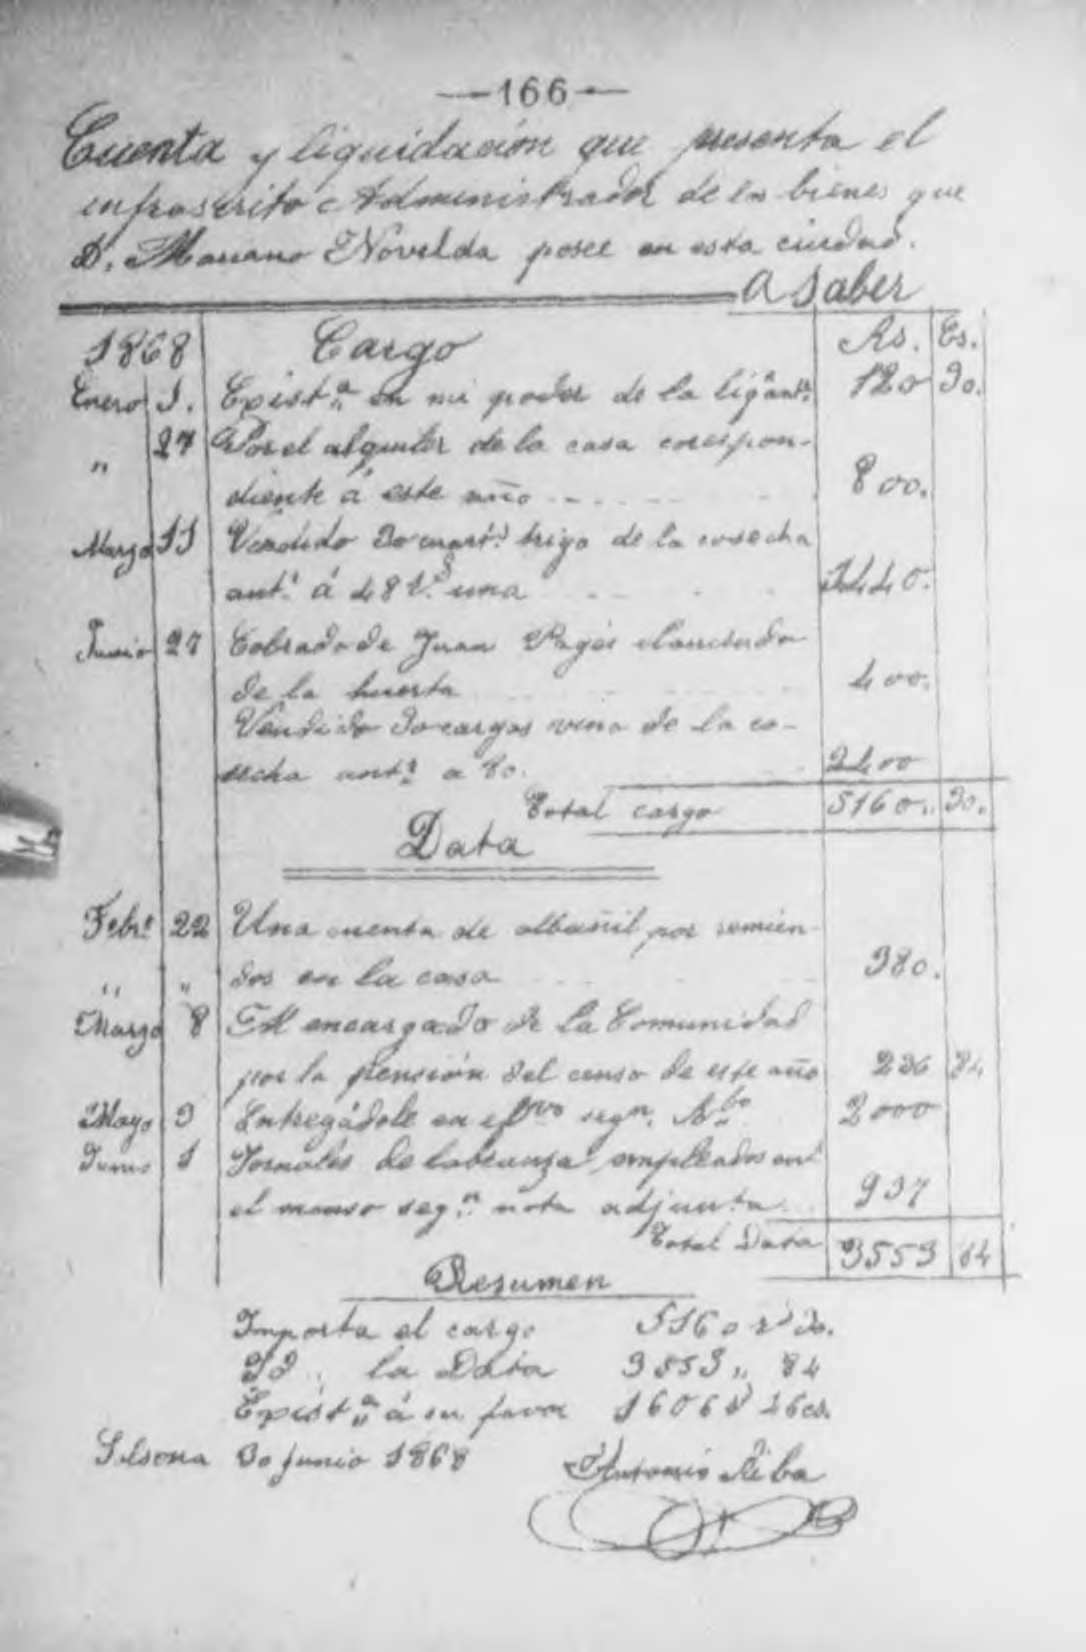 —166—
Cuenta y liquidación que presenta el
infrascrito Administrador de los bienes que
D. Mariano Novelda posee en esta ciudad.
A Saber
1868 Cargo Rs. Cs.
Enero 1. Exist.ª en mi poder de la liq.ª ant.ª 120 30.
" 27 Por el alquiler de la casa corespon-
diente á este año 800.
Marzo 11 Vendido 30 cuart.s trigo de la cosecha
ant.r á 48 r.s una 1440.
Junio 27 Cobrado de Juan Pagés el arriendo
de la huerta 400.
Vendido 30 cargas vino de la co-
secha ant.r a 80. 2400
Total cargo 5160. 30.
Data
Febr.o 22 Una cuenta de albañil por remien-
dos en la casa 380.
" "
Marzo 8 Al encargado de la Comunidad
por la pensión del censo de este año 236 84
Mayo 3 Entregádole en ef.vo seg.n R.bo 2000
Junio 1 Jornales de labranza empleados en
el manso seg.n nota adjunta 937
Total Data 3553 84
Resumen
Importa el cargo 5160 r.s 30.
Id. la Data 3553 " 84
Exist.ª á su favor 1606 r.s 46 cs.
Solsona 30 junio 1868
Antonio Riba